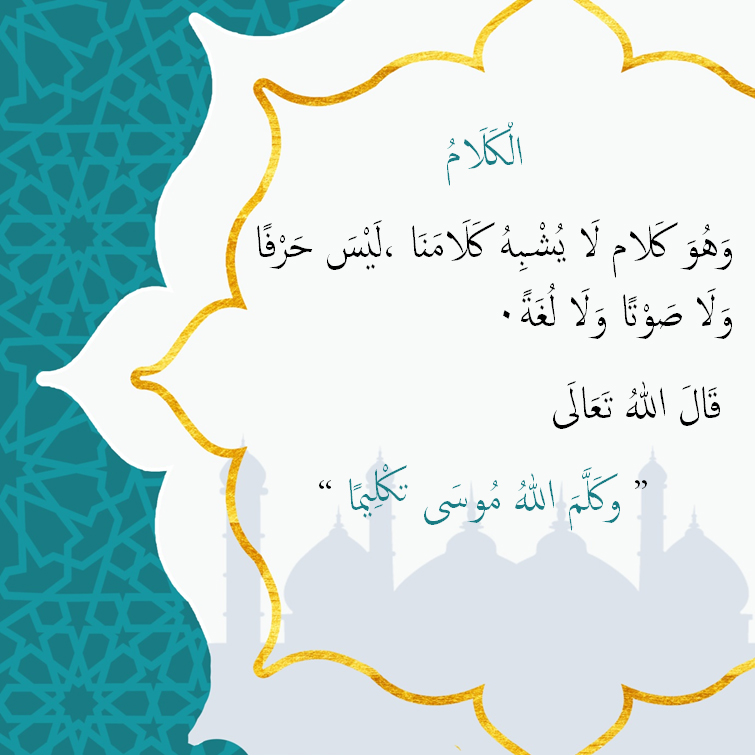 الْكَلَامُ
وَهُوَ كَلَام لَا يُشْبِهُ كَلَامَنَا ،لَيْسَ حَرْفًا
وَلَا صَوْتًا وَلَا لُغَةً.
قَالَ اللهُ تَعَالَى
” وَكَلَّمَ اللهُ مُوسَى تَكْلِيمًا “